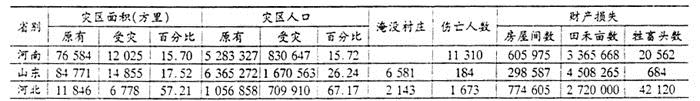 省别 灾区面积(方里) 灾区人口 淹没村庄 伤亡人数 财产损失
原有 受灾 百分比 原有 受灾 百分比 房屋间数 田禾亩数 牲畜头数
河南 76 584 12 025 15.70 5 283 327 830 647 15.72 11 310 605 975 3 365 668 20 562
山东 84 771 14 855 17.52 6 365 272 1 670 563 26.24 6 581 184 298 587 4 508 265 684
河北 11 846 6 778 57.21 1 056 858 709 910 67.17 2 143 1 673 774 605 2 720 000 42 120